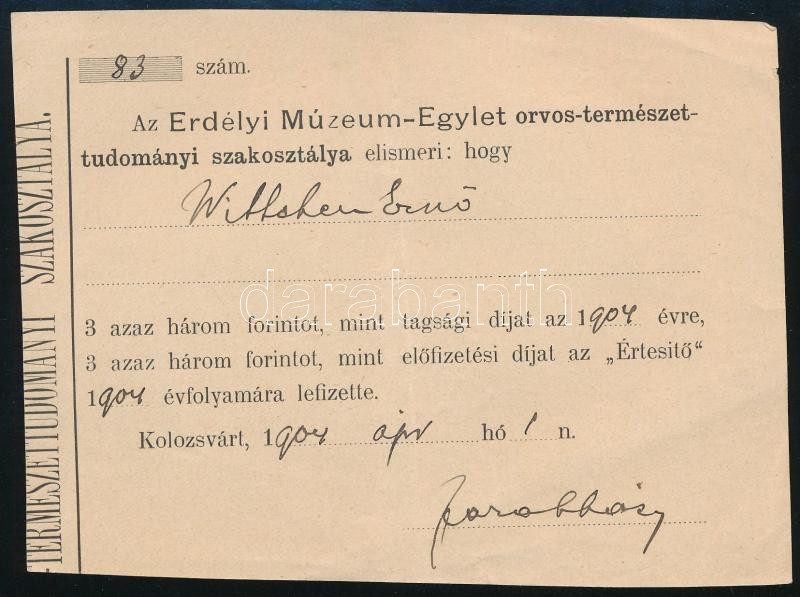 83 szám.
Az Erdélyi Múzeum-Egylet orvos-természet-
tudományi szakosztálya elismeri: hogy
Ernő
darabanth
3 azaz három forintot, mint tagsági díjat az 1904 évre,
3 azaz három forintot, mint előfizetési díjat az „Értesitő“
1904 évfolyamára lefizette.
Kolozsvárt, 1904 ápr hó 1 n.
-TERMÉSZETTUDOMÁNYI SZAKOSZTÁLYA.